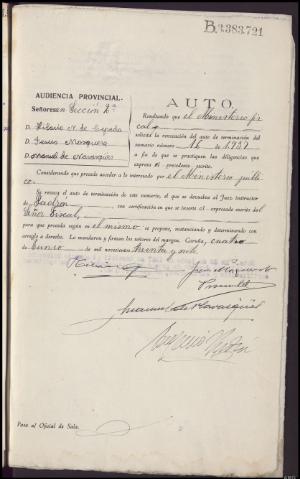 B.3.383.721
AUDIENCIA PROVINCIAL.
Señores: Sección 2ª
D. Hilario N. de Cepeda
D. Jesús Mosquera
D. Manuel de Navasqüés
AUTO.
Resultando que el Ministerio fis
cal
solicitó la revocación del auto de terminación del
sumario número 16 de 1937
a fin de que se practiquen las diligencias que
expresa el precedente escrito.
Considerando que procede acceder a lo interesado por el Ministerio públi
co.
Se revoca el auto de terminación de este sumario, el que se devuelva al Juez instructor
de Padrón con certificación en que se inserte el expresado escrito del
Señor Fiscal,
para que proceda según en el mismo se propone, sustanciando y determinando con
arreglo a derecho. Lo mandaron y firman los señores del margen. Coruña, cuatro
de Junio de mil novecientos treinta y ocho
Manuel de Navasqüés
Pasa al Oficial de Sala.